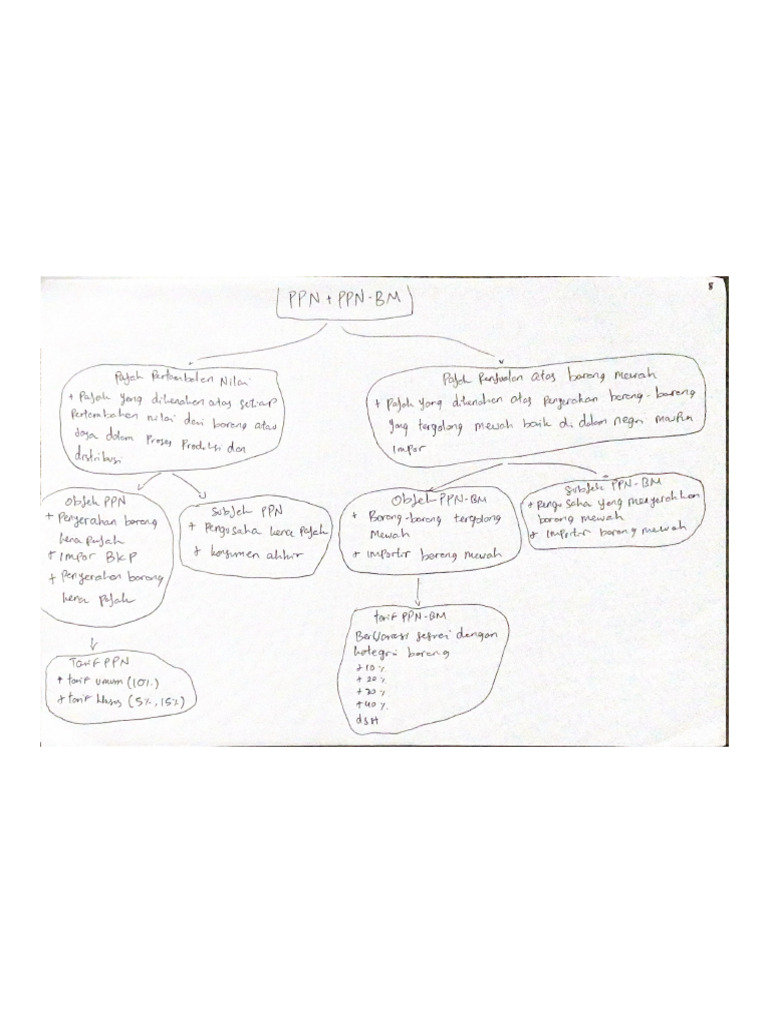 8
PPN + PPN-BM
Pajak Pertambahan Nilai
+ Pajak yang dikenakan atas setiap
Pertambahan nilai dari barang atau
Jasa dalam Proses Produksi dan
distribusi
Pajak Penjualan atas barang mewah
+ Pajak yang dikenakan atas Penyerahan barang-barang
yang tergolong mewah baik di dalam negri maupun
impor
Objek PPN
+ Penyerahan barang
kena pajak
+ Impor BKP
+ Penyerahan barang
kena pajak
Subjek PPN
+ Pengusaha kena Pajak
+ konsumen akhir
Objek PPN-BM
+ Barang-barang tergolong
Mewah
+ Importir barang mewah
Subjek PPN-BM
+ Pengusaha yang menyerahkan
barang mewah
+ Importir barang mewah
Tarif PPN
+ tarif umum (10%)
+ tarif khusus (5%, 15%)
tarif PPN-BM
Bervariasi sesuai dengan
kategori barang
+ 10%
+ 20%
+ 30%
+ 40%
dst